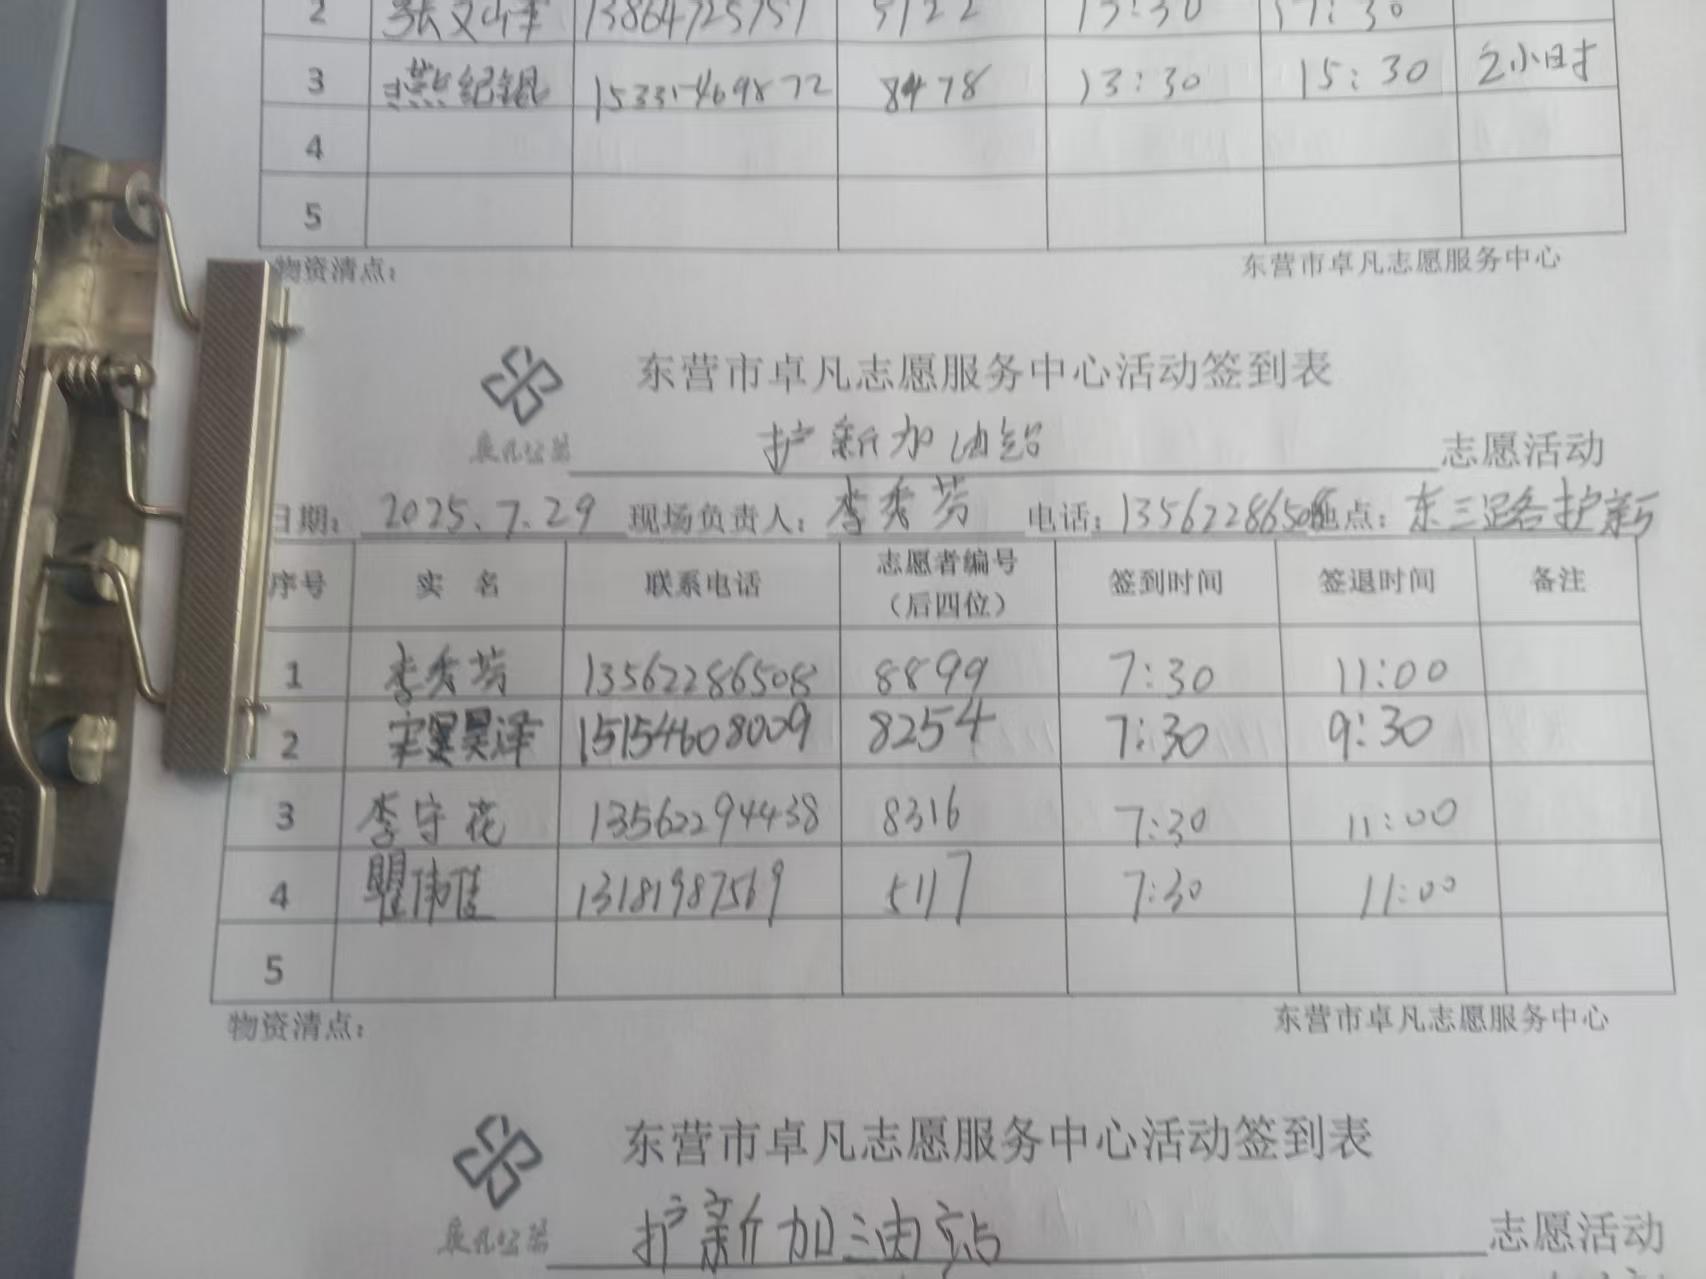 2 13864725757 5122 13:30 17:30
3 燕纪锟 15331469872 8478 13:30 15:30 2小时
4
5
物资清点： 东营市卓凡志愿服务中心
东营市卓凡志愿服务中心活动签到表
卓凡公益 护新加油站 志愿活动
日期：2025.7.29 现场负责人：李秀芳 电话：13562286508 地点：东三路护新
序号 实名 联系电话 志愿者编号（后四位） 签到时间 签退时间 备注
1 李秀芳 13562286508 8899 7:30 11:00
2 昊泽 15154608009 8254 7:30 9:30
3 李守花 13562294438 8316 7:30 11:00
4 瞿伟佳 13181987569 5117 7:30 11:00
5
物资清点： 东营市卓凡志愿服务中心
东营市卓凡志愿服务中心活动签到表
卓凡公益 护新加油站 志愿活动